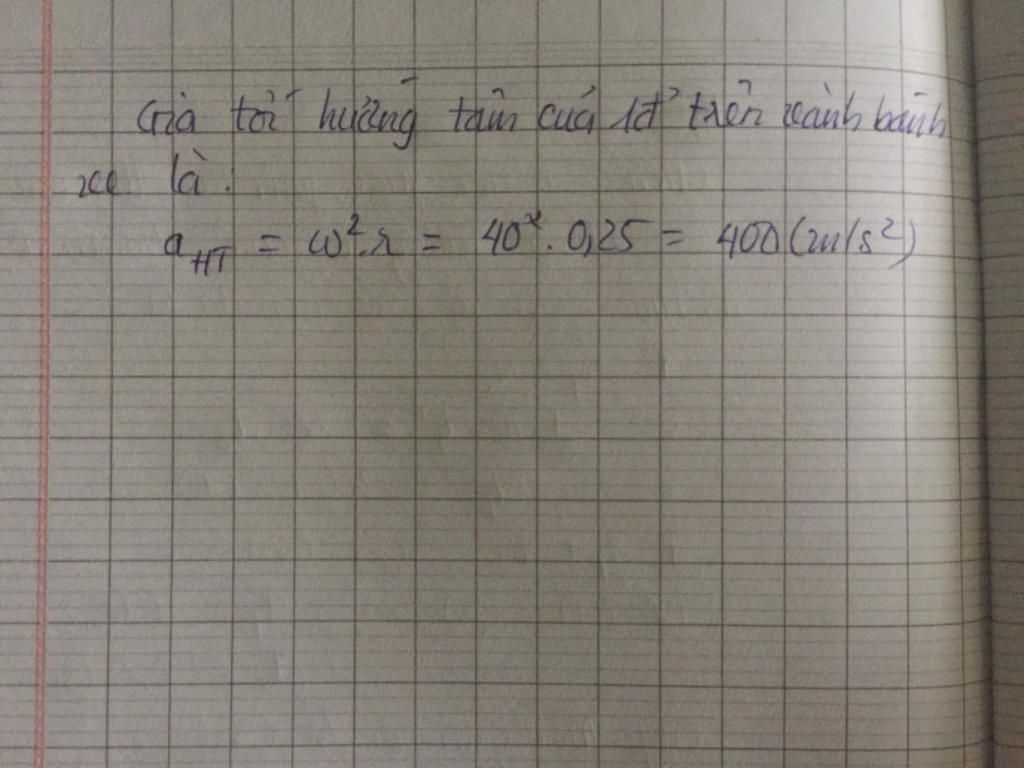 Gia tốc hướng tâm của 1đ' trên vành bánh
xe là:
a_HT = ω².r = 40². 0,25 = 400 (m/s²)